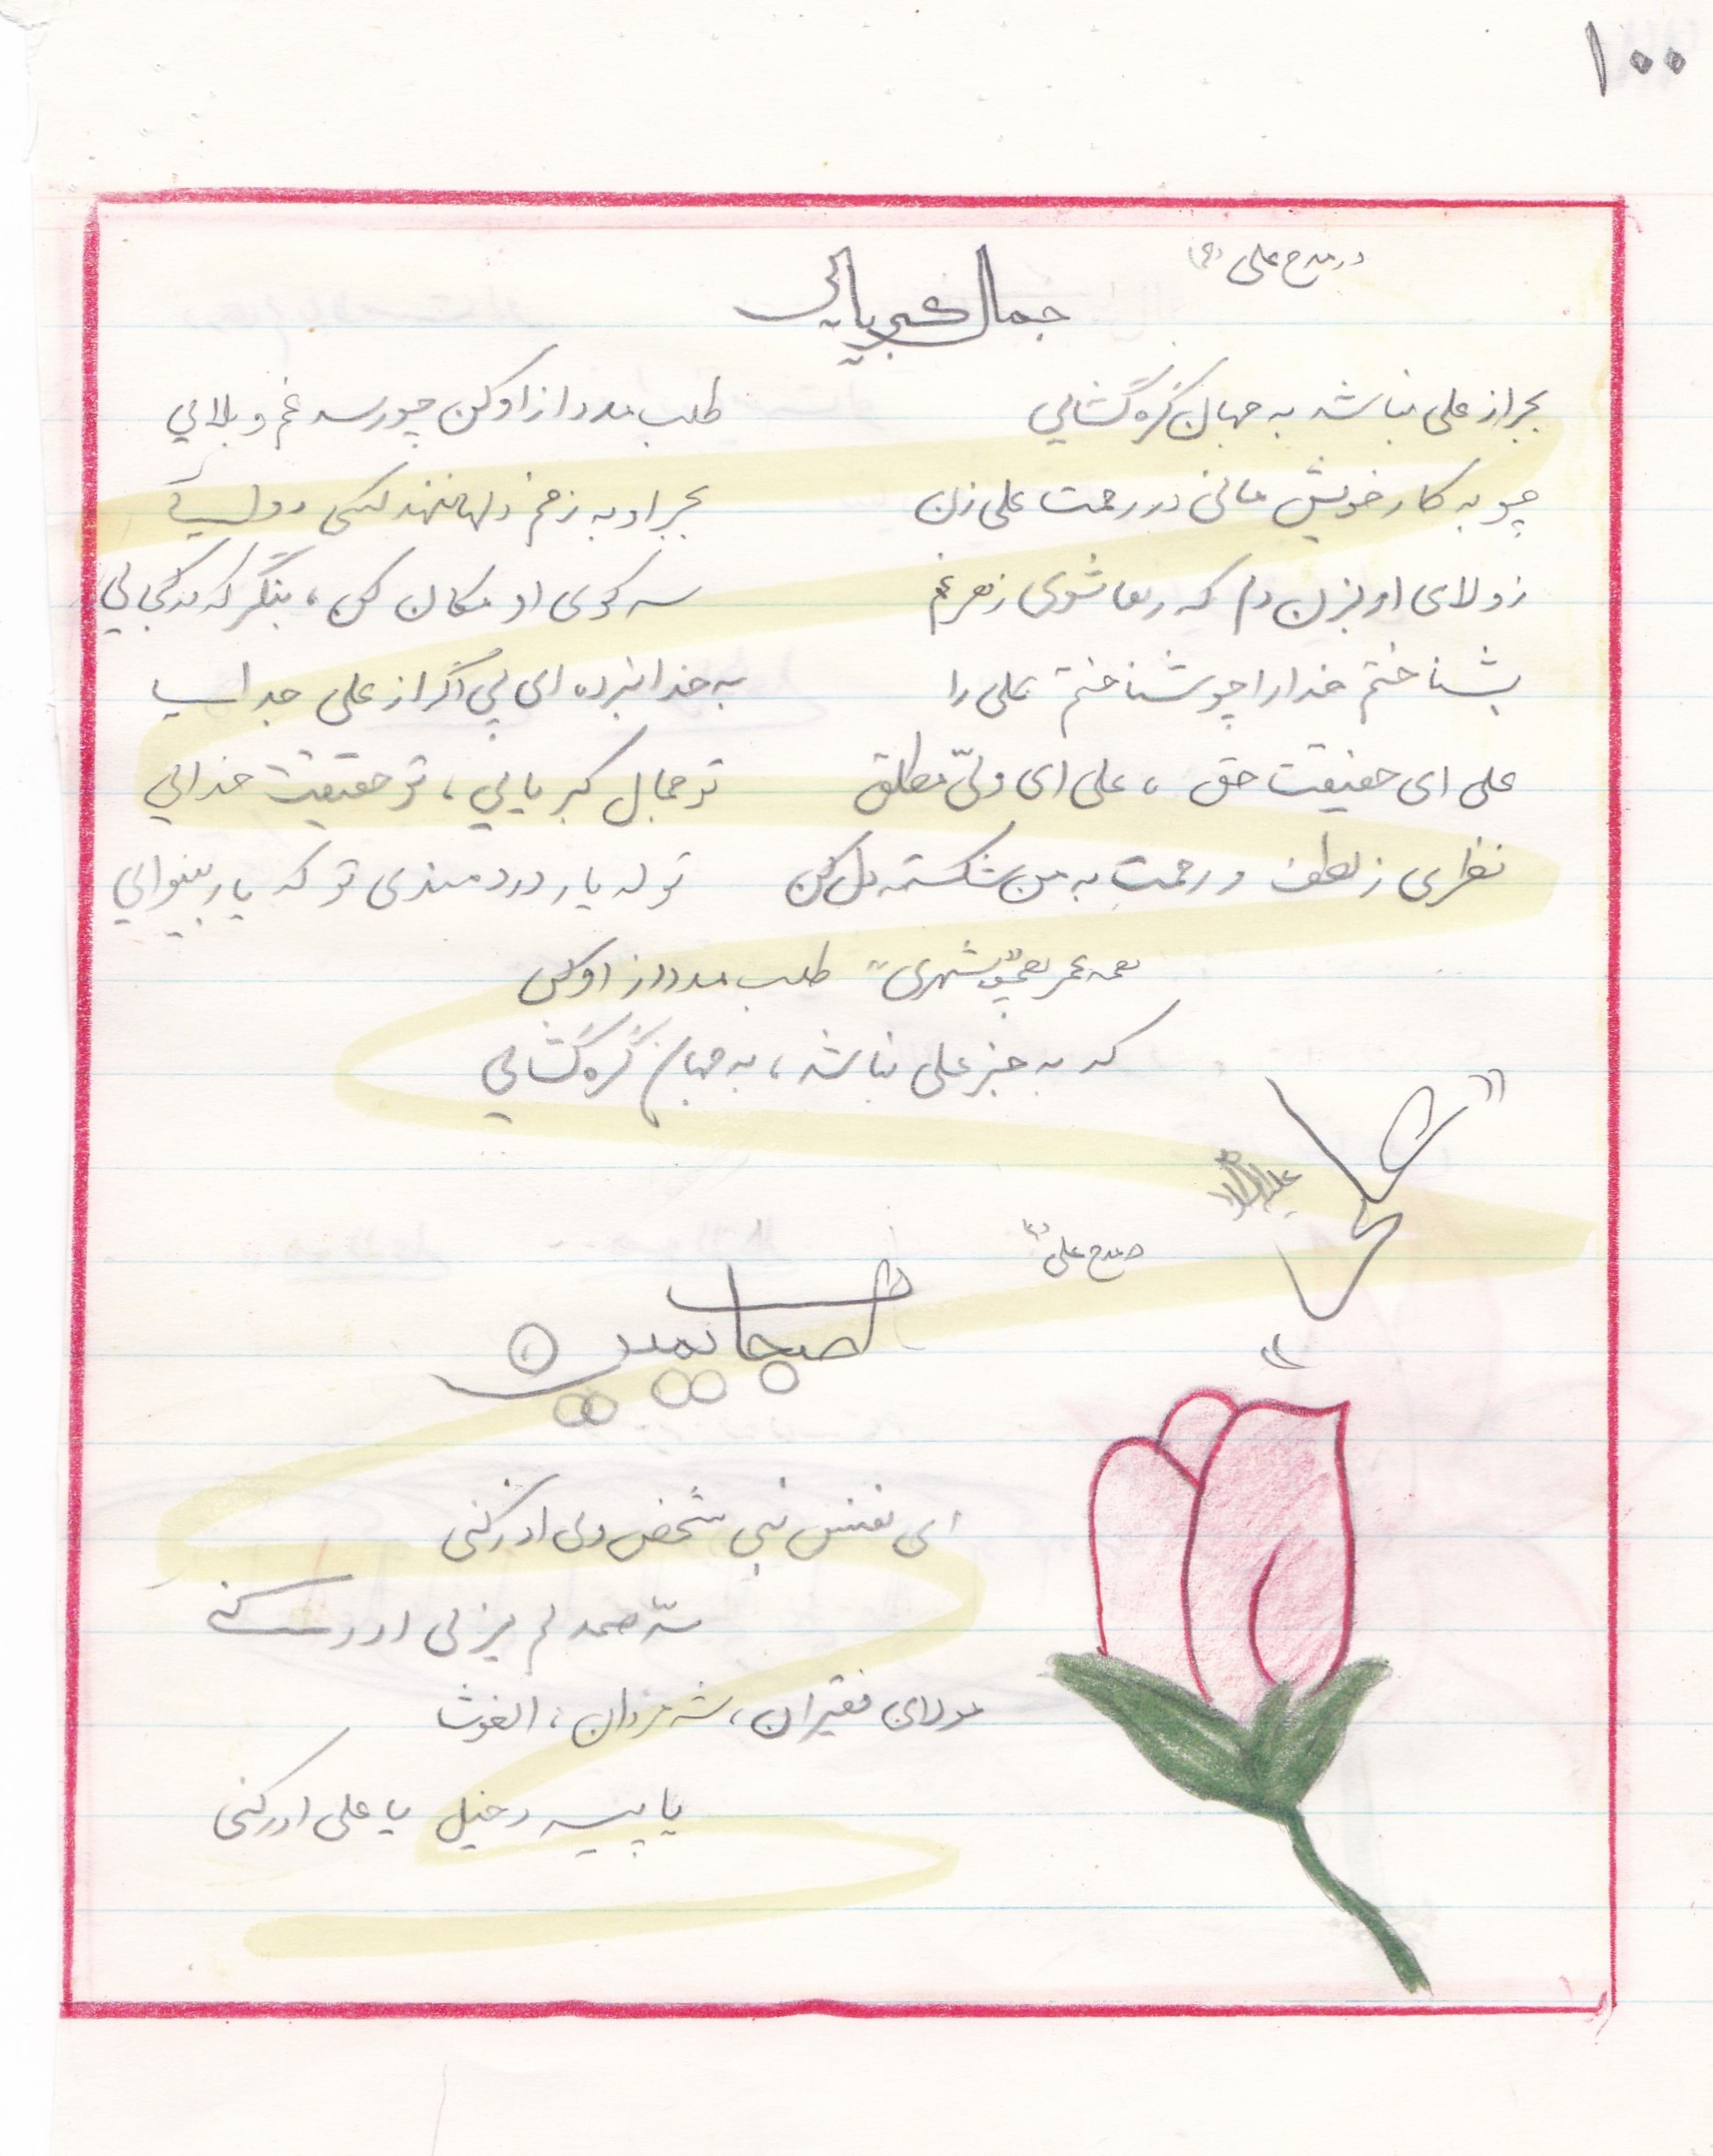 ۱۰۰
در مدح علی (ع)
جمال کبریایی
بجز از علی نباشد به جهان گره گشایی طلب مدد از او کن چو رسد غم و بلایی
چو به کار خویش مانی در رحمت علی زن بجز او به زخم دلها ننهد کسی دوایی
ز ولای او بزن دم که رها شوی ز هر غم سر کوی او مکان کن، بنگر که در کجایی
بشناختم خدا را چو شناختم علی را به خدا نبرده ای پی اگر از علی جدایی
علی ای حقیقت حق، علی ای ولیّ مطلق تو جمال کبریایی، تو حقیقت خدایی
نظری ز لطف و رحمت به من شکسته دل کن تو که یار دردمندی تو که یار بینوایی
همه عمر همچو "شهری" طلب مدد از او کن
که به جز علی نباشد، به جهان گره گشایی
مدح علی (ع)
ای نفس نبی شخص ولی ادرکنی
سرّ صمد لم یزلی ادرکنی
مولای فقیران، شه مردان، الغوث
یا پیر دخیل یا علی ادرکنی